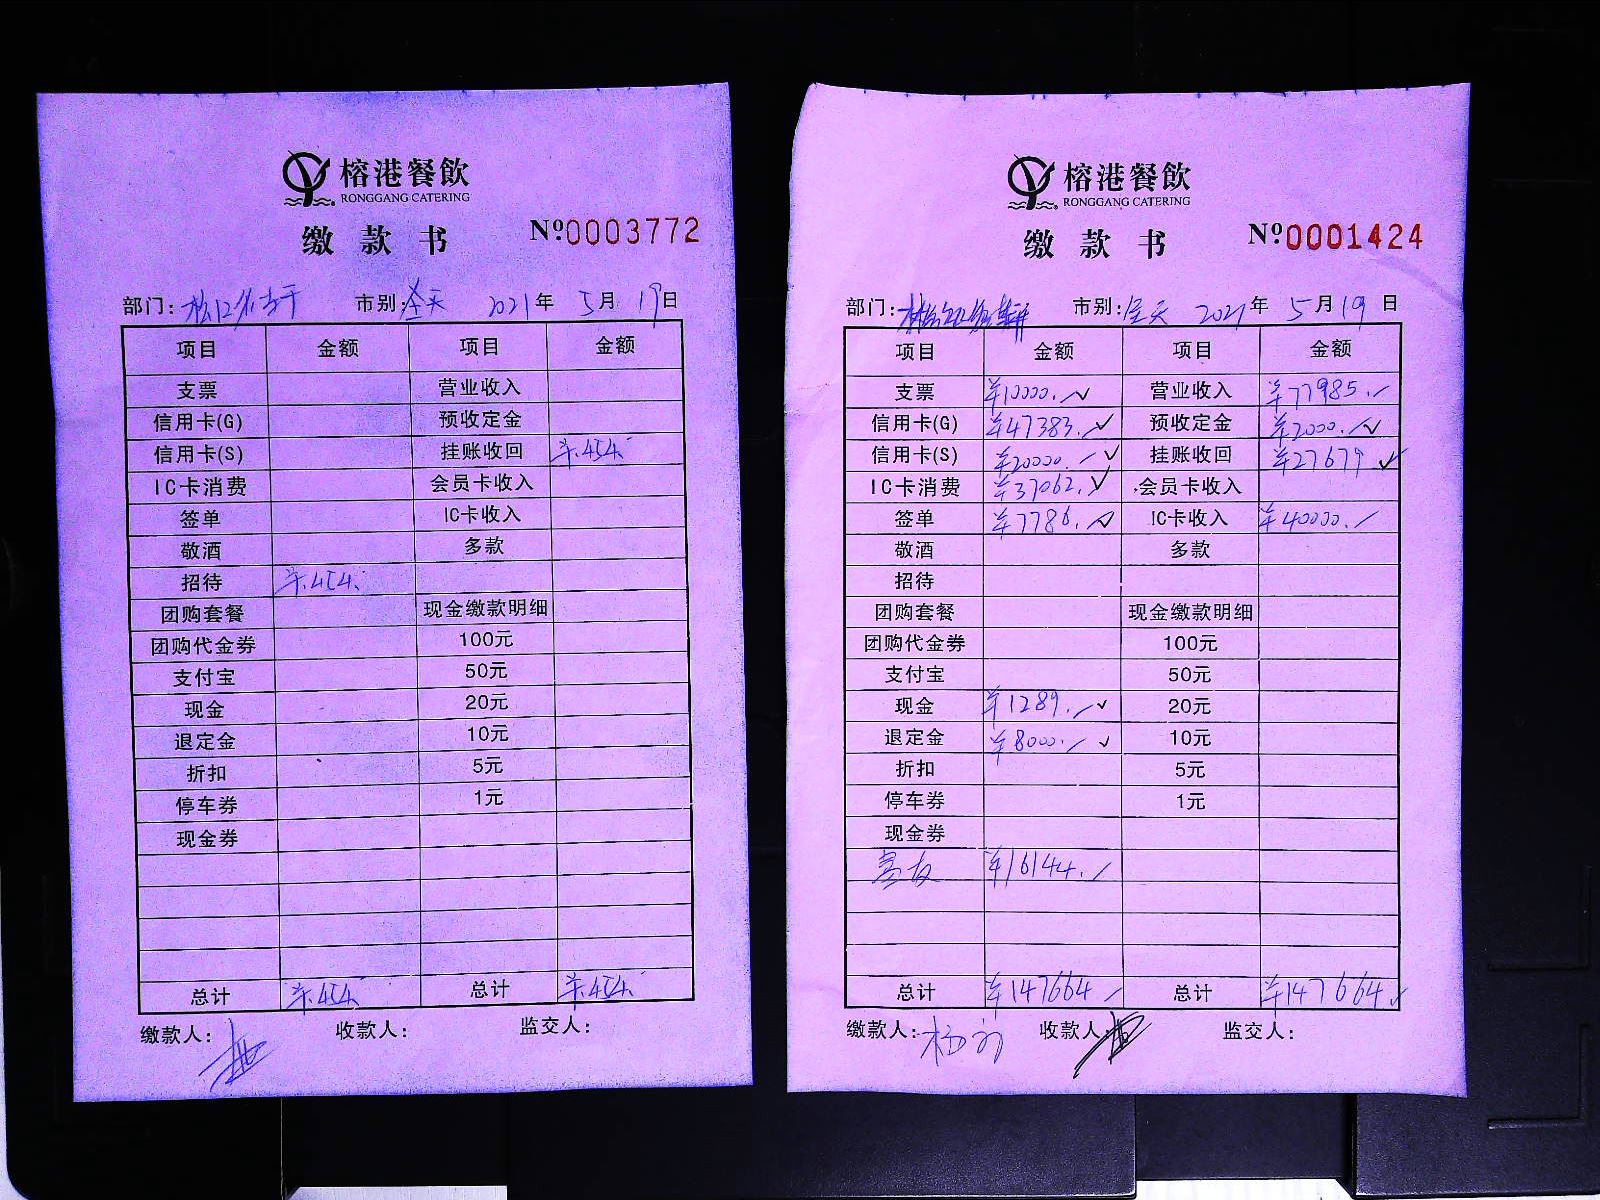 榕港餐飲
RONGGANG CATERING
缴款书
Nº0003772
部门: 市别:全天 2021年5月19日
项目 金额 项目 金额
支票 营业收入
信用卡(G) 预收定金
信用卡(S) 挂账收回 ¥454.
IC卡消费 会员卡收入
签单 IC卡收入
敬酒 多款
招待 ¥454.
团购套餐 现金缴款明细
团购代金券 100元
支付宝 50元
现金 20元
退定金 10元
折扣 5元
停车券 1元
现金券
总计 ¥454. 总计 ¥454.
缴款人: 收款人: 监交人:
榕港餐飲
RONGGANG CATERING
缴款书
Nº0001424
部门: 市别:全天 2021年5月19日
项目 金额 项目 金额
支票 ¥10000. 营业收入 ¥77985.
信用卡(G) ¥47383. 预收定金 ¥2000.
信用卡(S) ¥20000. 挂账收回 ¥27679
IC卡消费 ¥37062. 会员卡收入
签单 ¥7786. IC卡收入 ¥40000.
敬酒 多款
招待
团购套餐 现金缴款明细
团购代金券 100元
支付宝 50元
现金 ¥1289. 20元
退定金 ¥8000. 10元
折扣 5元
停车券 1元
现金券
¥16144.
总计 ¥147664 总计 ¥147664
缴款人: 收款人: 监交人: